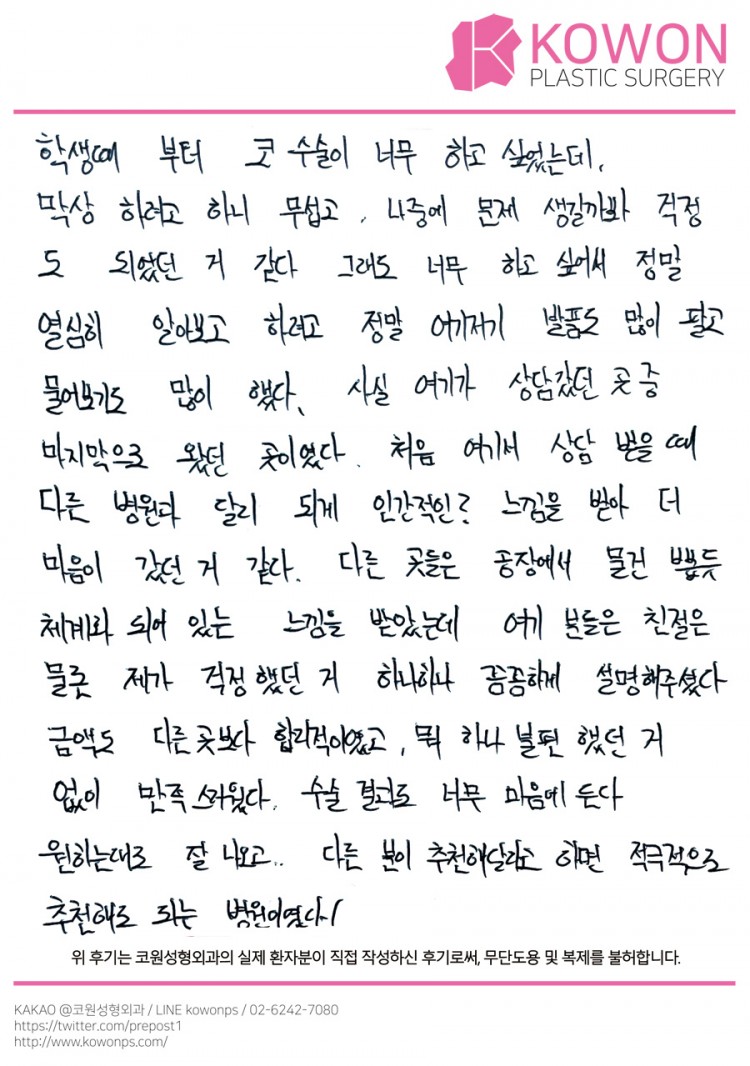 KOWON
PLASTIC SURGERY
학생때 부터 코 수술이 너무 하고 싶었는데,
막상 하려고 하니 무섭고, 나중에 문제 생길까봐 걱정
도 되었던 거 같다 그래도 너무 하고 싶어서 정말
열심히 알아보고 하려고 정말 여기저기 발품도 많이 팔고
물어보기도 많이 했다. 사실 여기가 상담갔던 곳 중
마지막으로 왔던 곳이었다. 처음 여기서 상담 받을 때
다른 병원과 달리 되게 인간적인? 느낌을 받아 더
마음이 갔던 거 같다. 다른 곳들은 공장에서 물건 뽑듯
체계화 되어 있는 느낌을 받았는데 여기 분들은 친절은
물론 제가 걱정했던 거 하나하나 꼼꼼하게 설명해주셨다
금액도 다른곳보다 합리적이였고, 뭐 하나 불편 했던 거
없이 만족스러웠다. 수술 결과도 너무 마음에 든다
원하는대로 잘 나오고.. 다른 분이 추천해달라고 하면 적극적으로
추천해도 되는 병원이였다!
위 후기는 코원성형외과의 실제 환자분이 직접 작성하신 후기로써, 무단도용 및 복제를 불허합니다.
KAKAO @코원성형외과 / LINE kowonps / 02-6242-7080
https://twitter.com/prepost1
http://www.kowonps.com/